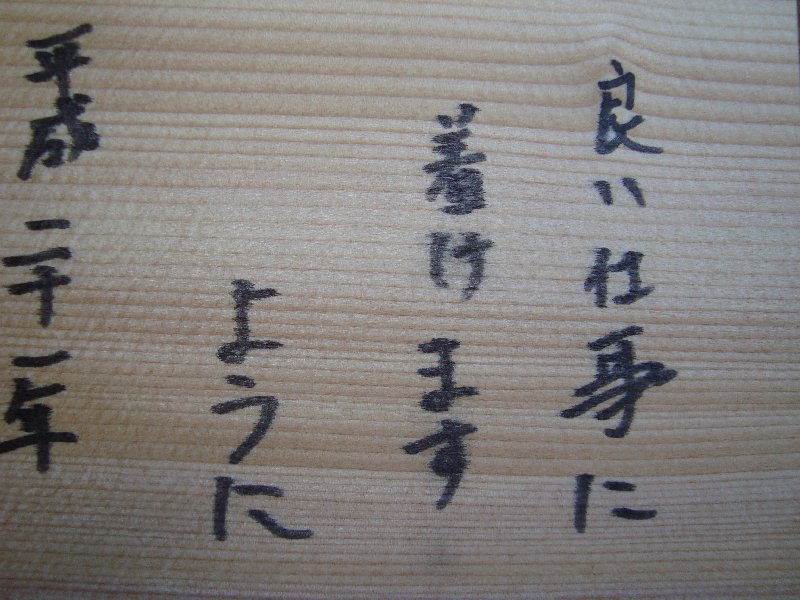 良い仕事に
着けます
ように
平成二十一年